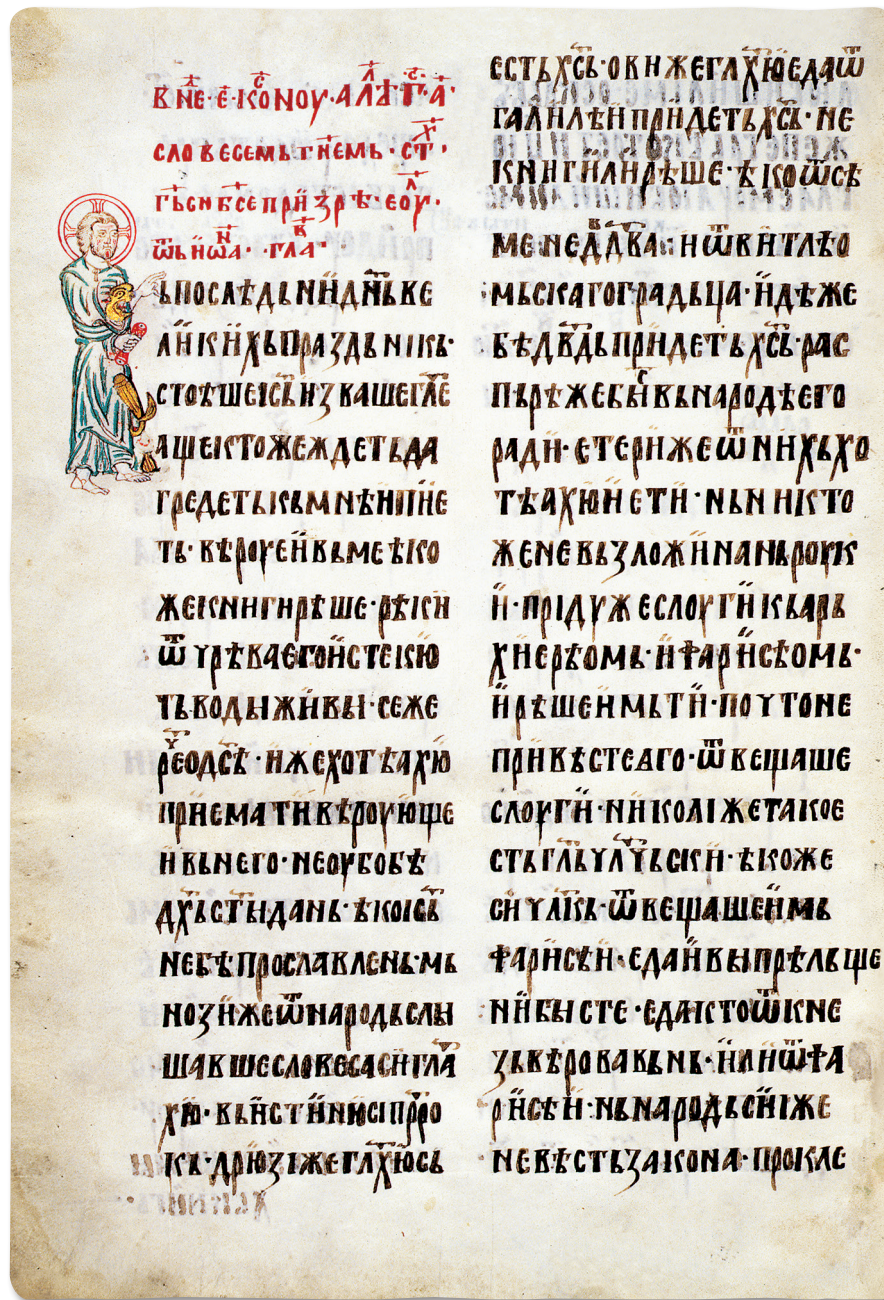 В҃ НЕ · Е҃ · КОНОУ · АЛѢ · Г҃ А҃ ·
СЛОВЕСЕМЬ Г҃НЕМЬ · СТ҃Х ·
Г҃Ь СНБ҃СЕ ПРИЗРѢ · ЕОУ҃Л ·
Ѿ ЬНѠА · ГЛА҃В
ЬПОСЛѢДЬНИДН҃ЬВЕ
ЛИКИХЬПРАЗДЬNIКЬ·
СТОѢШЕІС҃ЬИЗВАШЕГЛ҃Е
АЩЕКТОЖЕЖДЕТЬДА
ГРЕДЕТЬКЬМНѢИПИЕ
ТЬ·ВѢРОУЕИВЬМЕѢКО
ЖЕКНИГИРѢШЕ·РѢКИ
Ѿ҃ЧРѢВАЕГОИСТЕКЮ
ТЬВОДЫЖИВЫ·СЕЖЕ
РЕ҃ОДС҃Ѣ·ИЖЕХОТѢАХЮ
ПРИЕМАТИВѢРОУЮЩЕ
ИВЬНЕГО·НЕОУБОБѢ
ДХ҃ЬСТ҃ЫДАНЬ·ѢКОІС҃Ь
НЕБѢПРОСЛАВЛЕНЬ·МЬ
НОЗИЖЕѾ҃НАРОДЬСЛЫ
ШАВШЕСЛОВЕСАСИГЛ҃А
ХЮ·ВЬИСТИНЮСІПРРО
КЬ·ДРЮЗІЖЕГЛ҃ХЮСЬ
ЕСТЬХС҃Ь·ОВИЖЕГЛ҃ХЮЕДАѾ҃
ГАЛИЛѢИПРИДЕТЬХС҃Ь·НЕ
КНИГИЛИРѢШЕ·ѢКОѾ҃СѢ
МЕНЕДА҃ВА·ИѾ҃ВИТЛѢО
МЬСКАГОГРАДЬЦА·ИДѢЖЕ
БѢДВ҃ДЬПРИДЕТЬХС҃Ь·РАС
ПЬРѢЖЕБЫ҃СВЬНАРОДѢЕГО
РАДИ·ЕТЕРИЖЕѾ҃НИХЬХО
ТѢАХЮИЕТИ·NЬNИКТО
ЖЕНЕВЬЗЛОЖИНАНЬРОУК
И·ПРІДУЖЕСЛОУГИКЬАРЬ
ХИЕРѢОМЬ·ИФАРИСѢОМЬ·
ИРѢШЕИМЬТИ·ПОЧТОНЕ
ПРИВѢСТЕАГО·Ѿ҃ВЕЩАШЕ
СЛОУГИ·НИКОЛІЖЕТАКОЕ
СТЬГЛ҃ЬЧЛ҃ЧЬСКИ·ѢКОЖЕ
СИЧЛ҃КЬ·Ѿ҃ВЕЩАШЕИМЬ
ФАРИСѢИ·ЕДАИВЫПРѢЛЬЩЕ
НИБЫСТЕ·ЕДАКТОѾ҃КНЕ
ЗЬВѢРОВАВЬNЬ·ИЛИѾ҃ФА
РИСѢИ·NЬNАРОДЬСИІЖЕ
НЕВѢСТЬЗАКОНА·ПРОКЛЕ